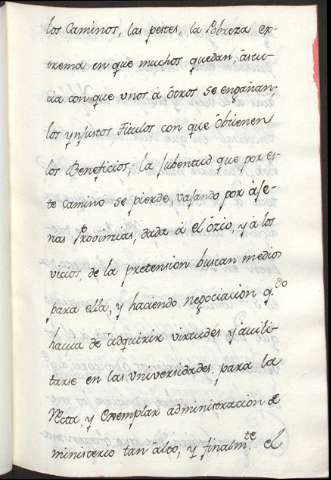 los Caminos, las pestes, la Pobreza ex-
trema en que muchos quedan, astu-
cia con que unos à otros se engañan,
los ynjustos Titulos con que obtienen
los Beneficios; la Jubentud que por es-
te camino se pierde, vajando por aje-
nas Provincias, dada à el ozio, y à los
vicios, de la pretension buscan medios
para ella, y haciendo negociacion q.do
havia de adquirir virtudes y avili-
tarse en las Universidades para la
recta, y Exemplar administracion de
ministerio tan alto, y finalm.te el